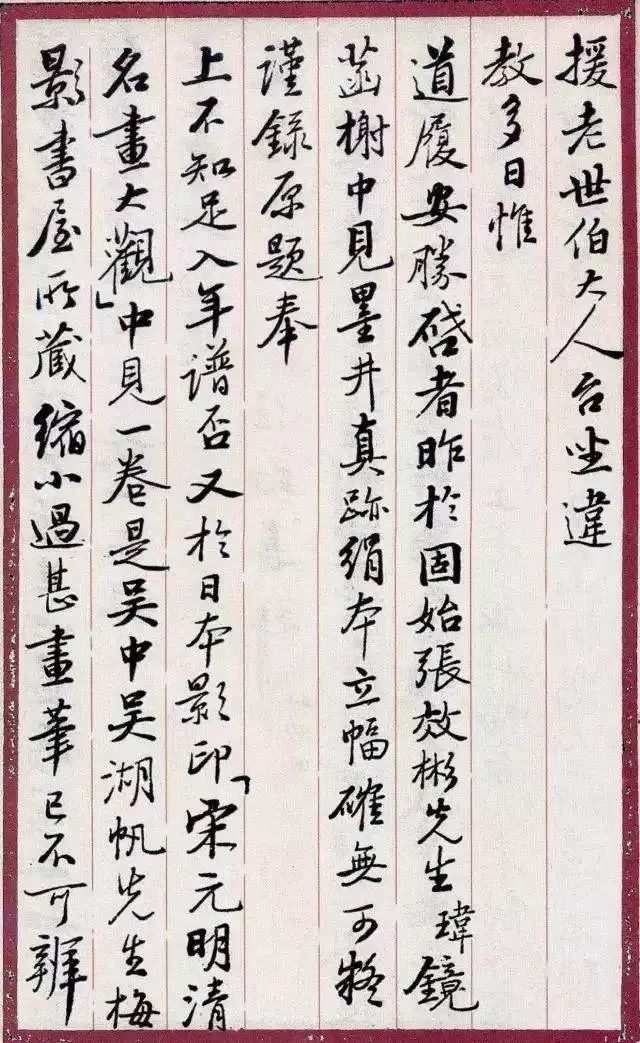 援老世伯大人台坐違
教多日惟
道履安勝啓者昨於固始張效彬先生瑋鏡
菡榭中見墨井真跡絹本立幅確無可疑
謹錄原題奉
上不知足入年譜否又於日本影印「宋元明清
名畫大觀」中見一卷是吴中吴湖帆先生梅
影書屋所藏縮小過甚畫筆已不可辨